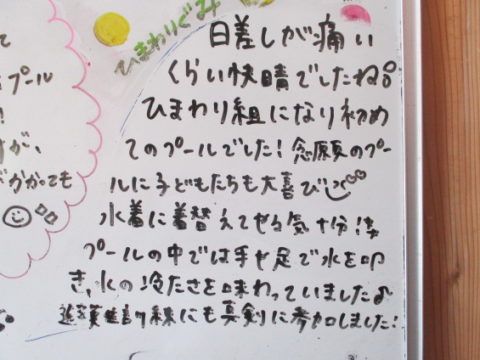 て
プール
!
すが、
がかかっても
ひまわりぐみ
日差しが痛い
くらい快晴でしたね。
ひまわり組になり初め
てのプールでした!念願のプー
ルに子どもたちも大喜び
水着に着替えてやる気十分!
プールの中では手や足で水を叩
き、水の冷たさを味わっていました♪
避難訓練にも真剣に参加しました!